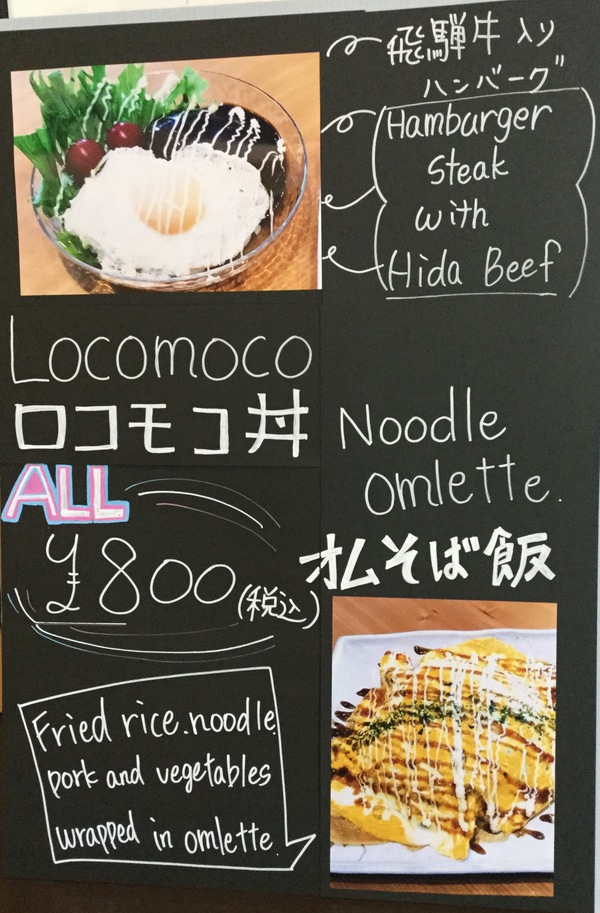 飛騨牛入り
ハンバーグ
Hamburger
Steak
with
Hida Beef
Locomoco
ロコモコ丼
ALL
¥800(税込)
Noodle
omlette.
オムそば飯
Fried rice.noodle
pork and vegetables
wrapped in omlette.